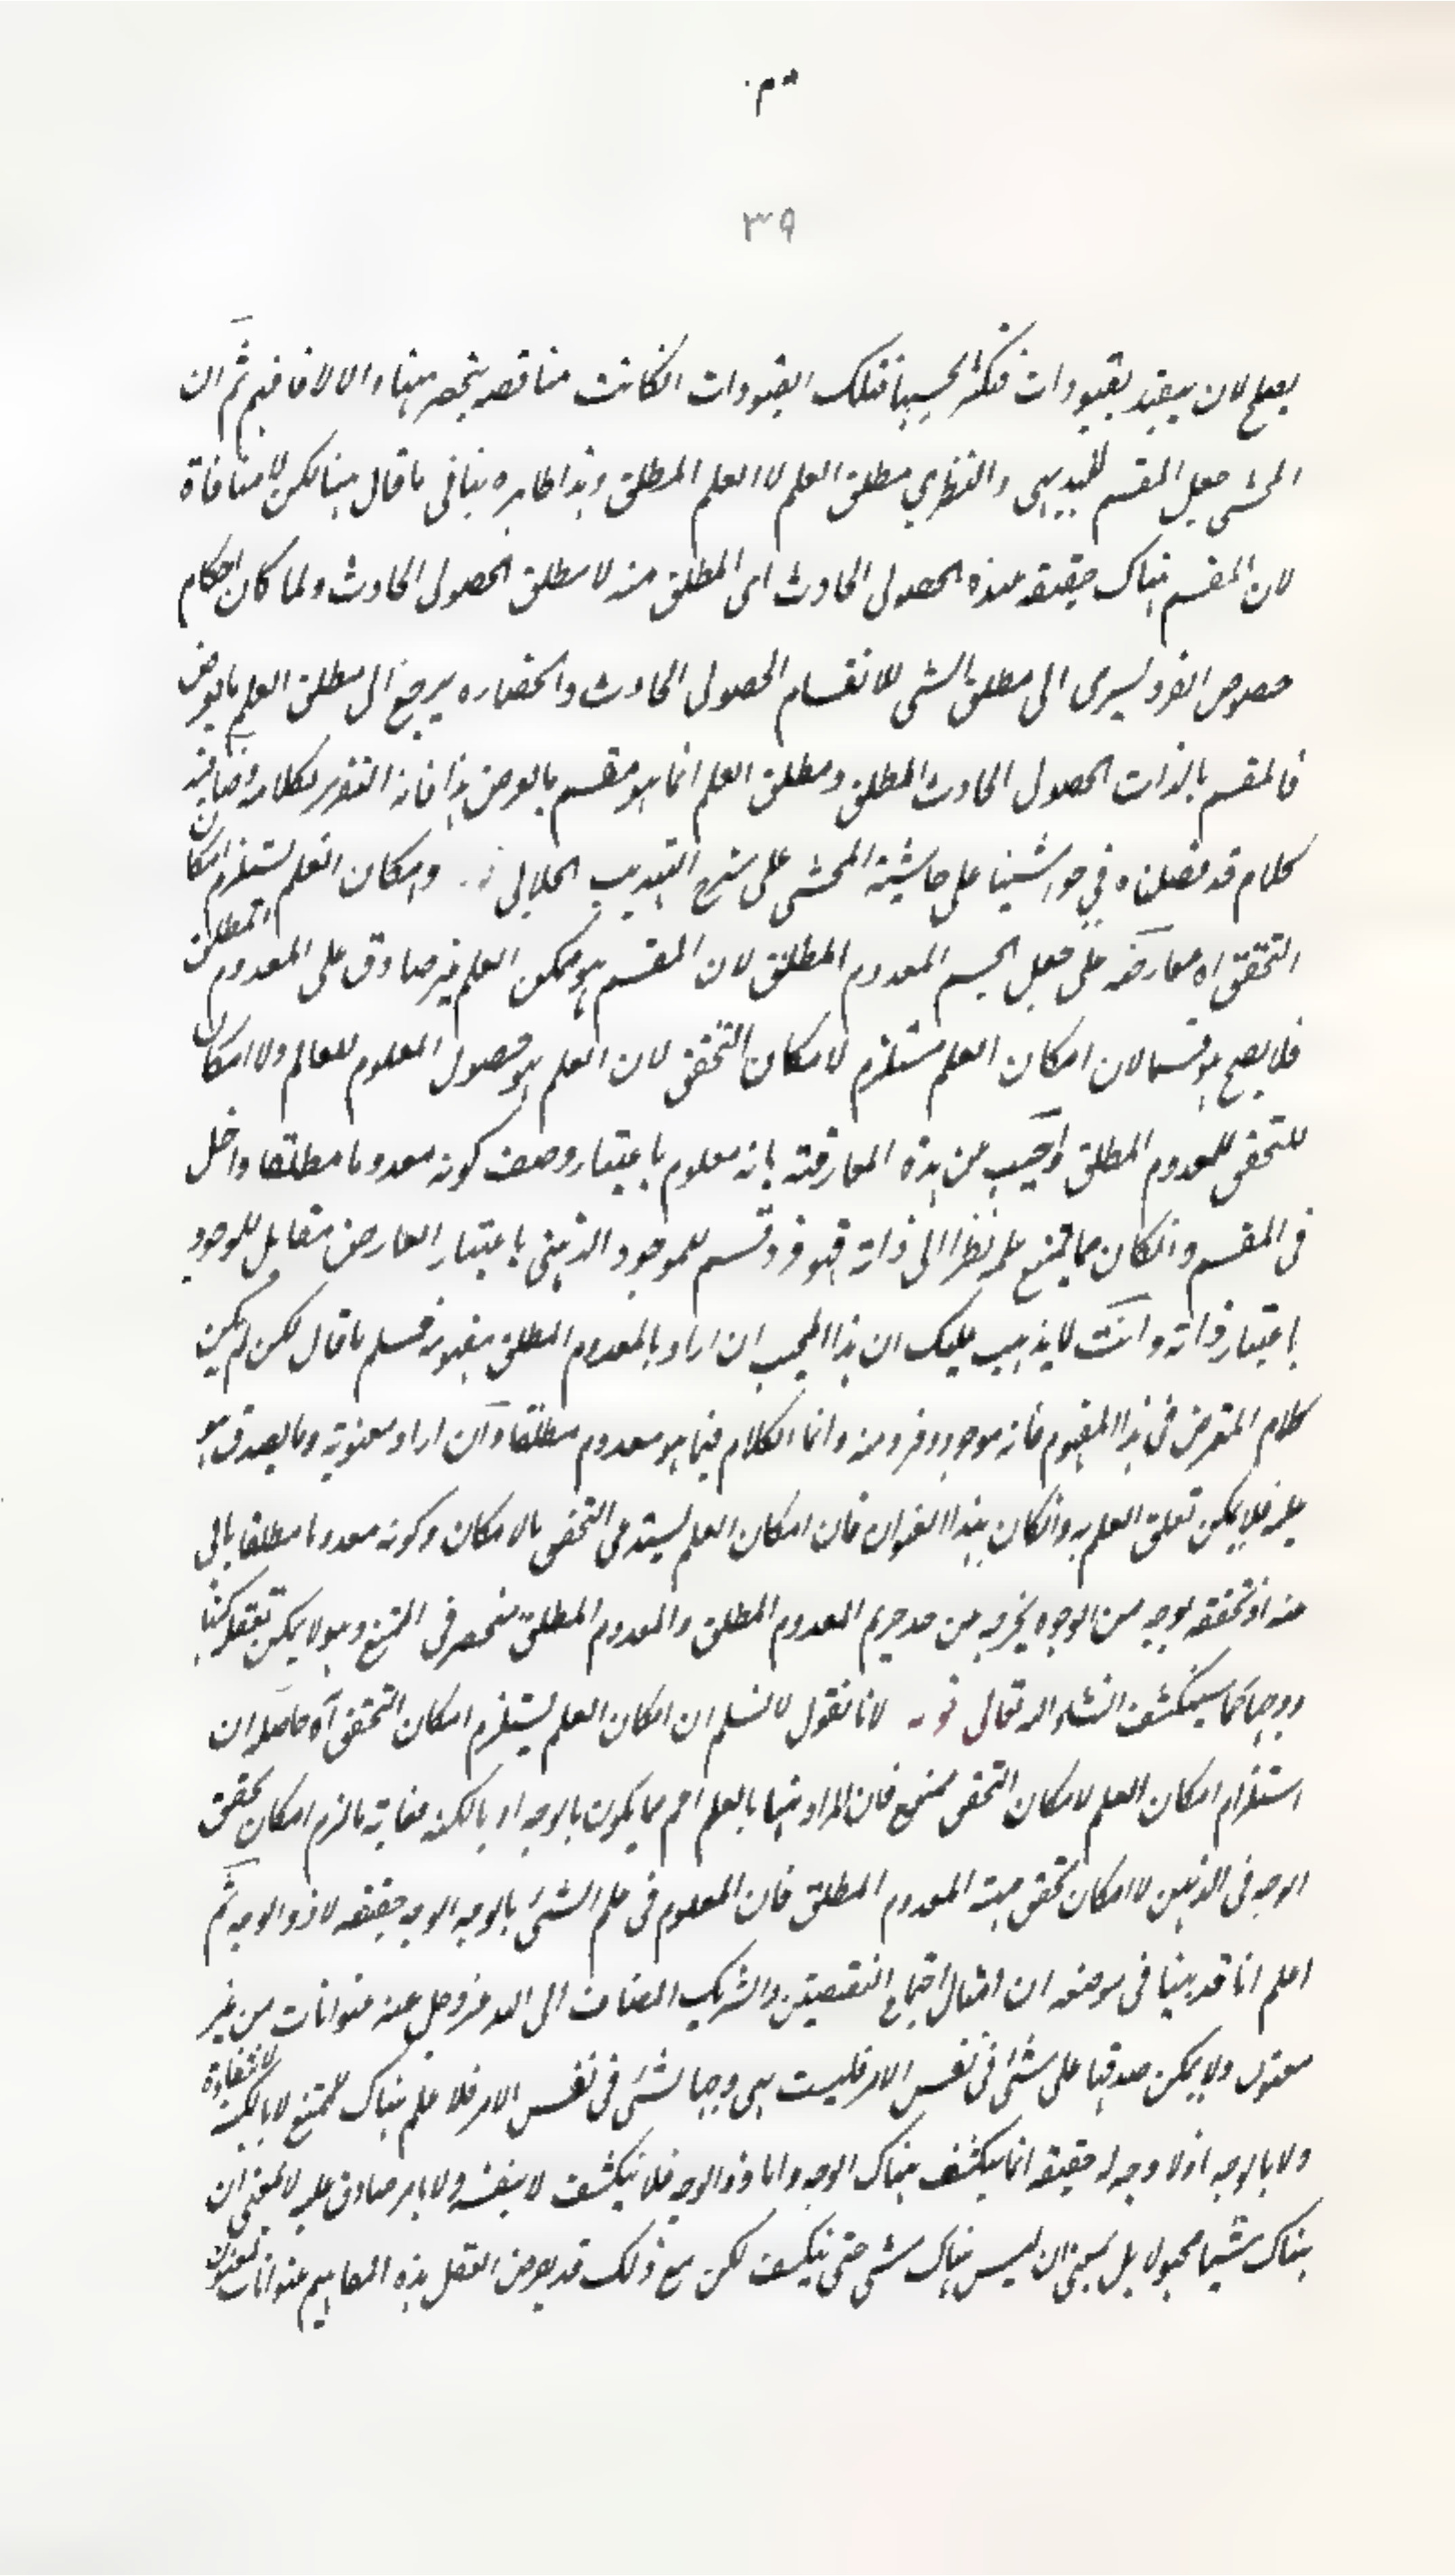 ٣٩
يصلح لان يتقيد بقيودات فتكثر بحسبها فتلك القيودات انكانت مناقضه ينحصر فيها والا لا فافهم ثم ان
المحشي جعل المقسم للبديهي والنظري مطلق العلم لا العلم المطلق وهذا ظاهره ينافي ما قال هنا لكن لا منافاة
لان المقسم هناك حقيقة عنده الحصولي الحادث اي المطلق منه لا مطلق الحصولي الحادث ولما كان احكام
خصوص الفرد يسري الى مطلق الشي فانقسام الحصولي الحادث وانحصاره يرجع الى مطلق العلم بالعرض
فالمقسم بالذات الحصول الحادث المطلق ومطلق العلم انما هو مقسم بالعرض هذا غاية التقرير لكلامه وفيه
كلام قد فصلناه في حواشينا على حاشية المحشي على شرح التهذيب الجلالي وامكان العلم يستلزم امكان
التحقق اه معارضه على جعل الجسم المعدوم المطلق لان المقسم هو ممكن العلم غير صادق على المعدوم المطلق
فلا يصح هو قسما لان امكان العلم مستلزم لامكان التحقق لان العلم هو حصول المعلوم للعالم ولا امكان
للتحقق للمعدوم المطلق واجيب عن هذه المعارضة بانه معلوم باعتبار وصف كونه معدوما مطلقا وداخل
في المقسم وانكان مما يمتنع علمه نظرا الى ذاته فهو فرد وقسم للموجود الذهني باعتبار العارض مقابل للموجود
باعتبار ذاته وانت لا يذهب عليك ان هذا المجيب ان اراد بالمعدوم المطلق مفهومه فمسلم ما قال لكن لم يكن
كلام المعترض في هذا المفهوم فانه موجود وفرد منه وانما الكلام فيما هو معدوم مطلقا وان اراد معنونه وما يصدق هو
عليه فلا يمكن تعلق العلم به وانكان بهذا العنوان فان امكان العلم يستدعي التحقق بالامكان وكونه معدوما مطلقا يابى
عنه اذ تحققه بوجه من الوجوه يخرجه من حد حريم المعدوم المطلق والمعدوم المطلق منحصر في الممتنع وهو لا يمكن تعقله كنها
ووجها كما سينكشف انشاء الله تعالى قوله لانا نقول لا نسلم ان امكان العلم يستلزم امكان التحقق آه حاصله ان
استلزام امكان العلم لامكان التحقق ممنوع فان المراد ههنا بالعلم اعم مما يكون بالوجه او بالكنه فغاية ما لزم امكان تحقق
الوجه في الذهن لا امكان تحقق مهية المعدوم المطلق فان المعلوم في علم الشئ بالوجه الوجه حقيقه لا ذو الوجه ثم
اعلم انا قد بينا في موضعه ان امثال اجتماع النقيضين والشريك المضاف الى الله عز وجل عنه عنوانات من غير
معنون ولا يمكن صدقها على شئ في نفس الامر فليست هي وجها لشئ في نفس الامر فلا علم هناك للممتنع لا بالكنه
ولا بالوجه اذ لا وجه له حقيقه انما ينكشف هناك الوجه واما ذو الوجه فلا ينكشف لا بنفسه ولا بامر صادق عليه لا بمعنى ان
هناك شيئا مجهولا بل بمعنى ان ليس هناك شي حتى ينكشف لكن مع ذلك قد يعرض العقل هذه المفاهيم عنوانات